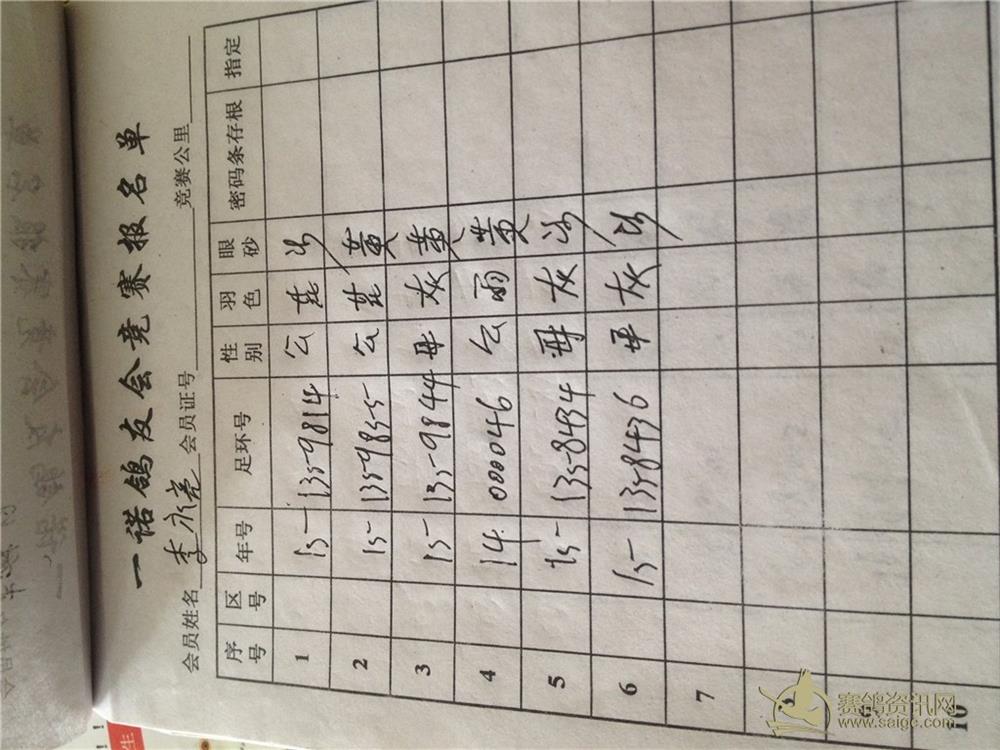 一诺鸽友会竞赛报名单
会员姓名 李永亮 会员证号 竞赛公里
序号 区号 年号 足环号 性别 羽色 眼砂 密码条存根 指定
1 15- 135-9814 公 花 沙
2 15- 135-9855 公 花 黄
3 15- 135-9844 母 灰 黄
4 14. 000046 公 雨 黄
5 15- 135-8434 母 灰 沙
6 15- 135-8436 母 灰 沙
7
10
赛鸽资讯网
www.saige.com